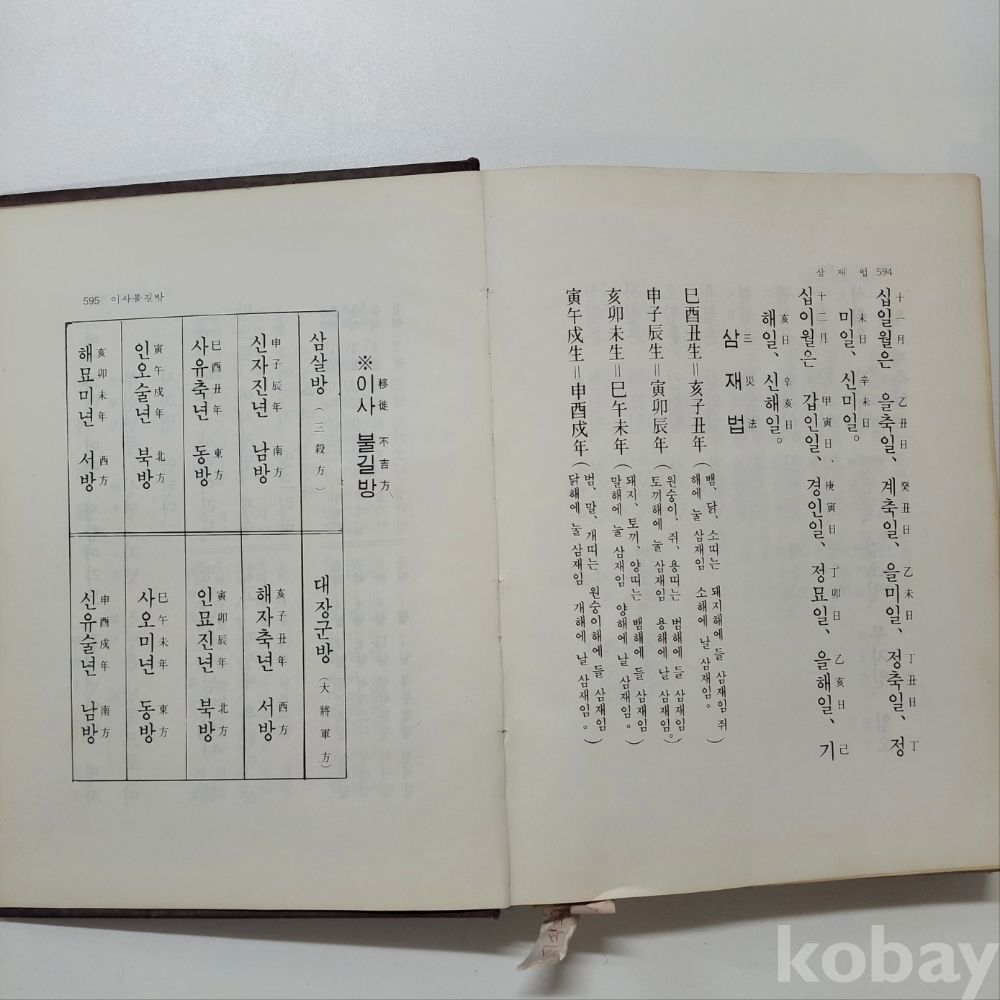 삼 재 법 594
十一月 乙丑日 癸丑日 乙未日 丁丑日 丁
십일월은 을축일、계축일、을미일、정축일、정
未日 辛未日
미일、신미일。
十二月 甲寅日、庚寅日 丁卯日 乙亥日 己
십이월은 갑인일、경인일、정묘일、을해일、기
亥日 辛亥日
해일、신해일。
三災法
삼재법
巳酉丑生=亥子丑年(뱀、닭、소띠는 돼지해에 들 삼재임 쥐
해에 눌 삼재임 소해에 날 삼재임。)
申子辰生=寅卯辰年(원숭이、쥐、용띠는 범해에 들 삼재임
토끼해에 눌 삼재임 용해에 날 삼재임。)
亥卯未生=巳午未年(돼지、토끼、양띠는 뱀해에 들 삼재임
말해에 눌 삼재임 양해에 날 삼재임。)
寅午戌生=申酉戌年(범、말、개띠는 원숭이해에 들 삼재임
닭해에 눌 삼재임 개해에 날 삼재임。)
595 이사불길방
移徙 不吉方
※이사 불길방
삼살방(三殺方)
申子辰年 南方
신자진년 남방
巳酉丑年 東方
사유축년 동방
寅午戌年 北方
인오술년 북방
亥卯未年 西方
해묘미년 서방
대장군방(大將軍方)
亥子丑年 西方
해자축년 서방
寅卯辰年 北方
인묘진년 북방
巳午未年 東方
사오미년 동방
申酉戌年 南方
신유술년 남방
kobay